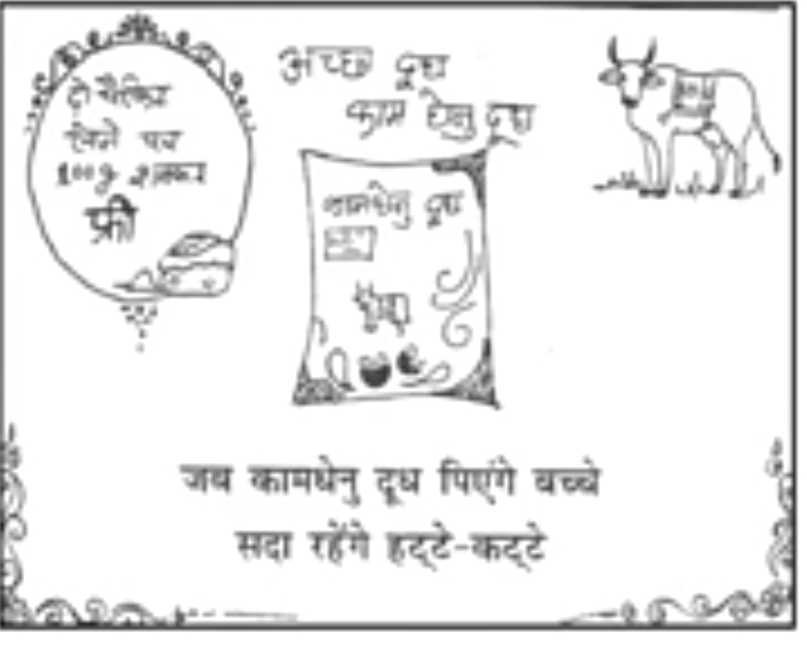 दो पैकेट
लेने पर
100g शक्कर
फ्री
अच्छा दूध
काम धेनु दूध
कामधेनु दूध
जब कामधेनु दूध पिएंगे बच्चे
सदा रहेंगे हट्टे-कट्टे